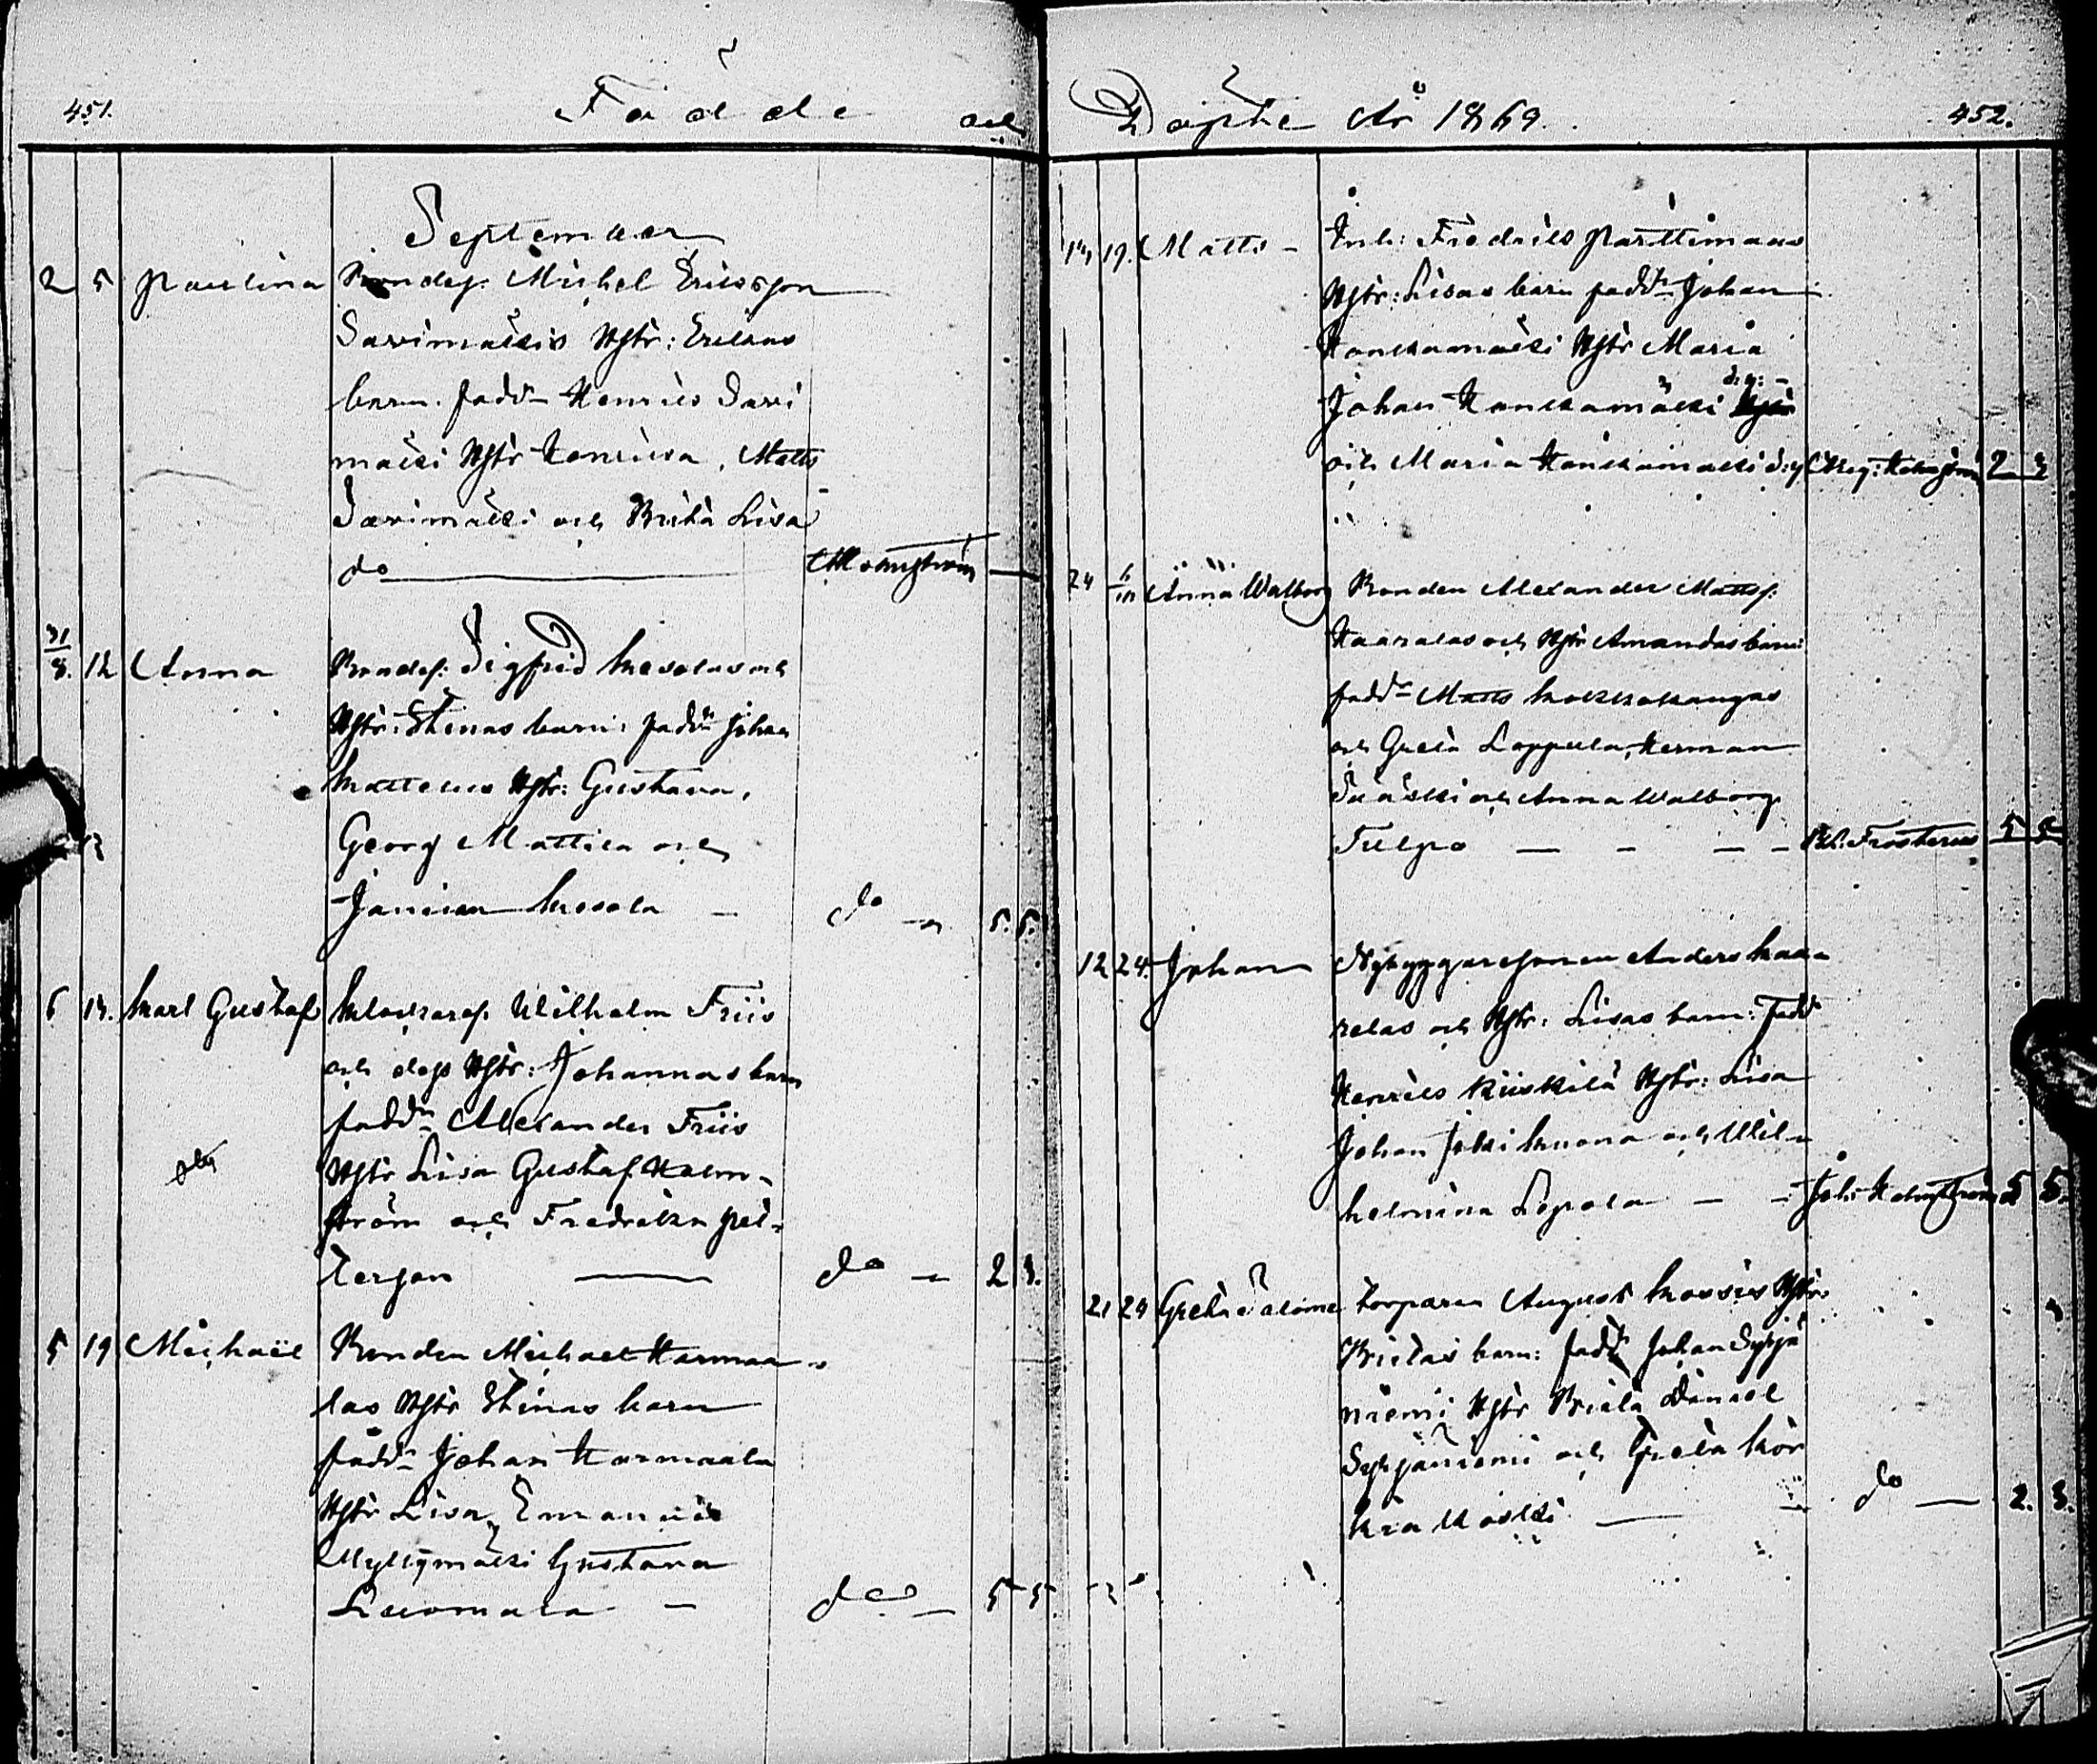 451.
Födde och
September
2 5 Paulina Bondes. Michel Ericsson
Savimäkis Hstr: Ericas
barn. fadd: Henric Savi
mäki Hstr Henrica, Matts
Savimäki och Brita Lisa
do
31/8. 12 Anna Bondes. Sigfrid Kesolas och
Hstr: Stinas barn: fadd: Johan
Hstr: Gustava,
Georg Mattila och
Kesola — do — 5. 5.
6 13. Karl Gustaf Klockares. Wilhelm Friis
och dess Hstr: Johannas barn
fadd: Alexander Friis
Hstr Lisa Gustaf Holm-
ström och Fredrika Pet-
terson — do — 2 3.
5 19 Michael Bonden Michael Harmaa-
las Hstr Stinas barn
fadd: Johan Harmaala
Hstr Lisa, Emanuel
Myllymäki Gustava
Luomala — do — 5 5
Döpte År 1869.
452.
19. Matts — Inh: Fredrik Parttimaas
Hstr: Lisas barn fadd: Johan
Kankamäki Hstr Maria
Johan Kankamäki
och Maria Kankamäki 2 3
24 Anna Walborg Bonden Alexander Mattss.
och Hstr Amandas barn:
fadd: Matts
och Greta Loppula, Herman
Sääski och Anna Walborg
Tulpo — — Frosterus 5 5
12 24. Johan Nybyggaresonen Anders Kaa-
relas och Hstr: Lisas barn: Fadd
Henrik Kiiskilä Hstr: Lisa
Johan Jokikuona och Wil-
helmina Lopola — Joh: Holmström 5 5.
21 24 Greta Salome Torparen August Kossis Hstr:
Britas barn: fadd: Johan Sykjä
niemi Hstr Brita Daniel
Sykjäniemi och Greta Kor
kiakoski — do — 2. 3.